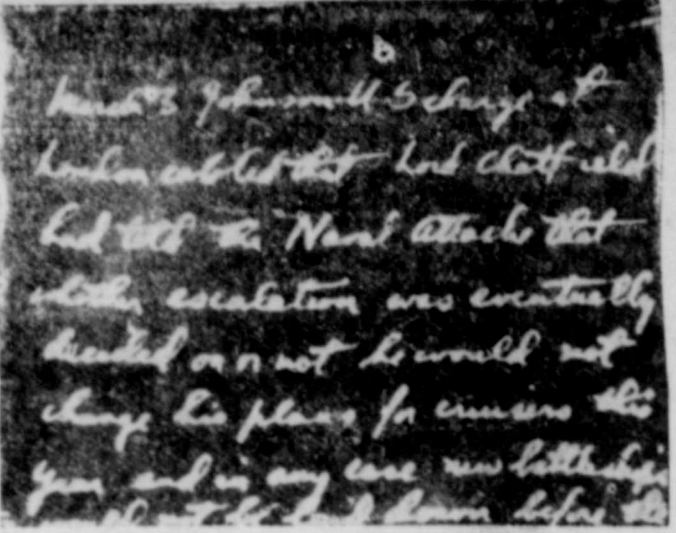 b
March 3 Johnson U S charge at
London cabled that Lord Chatfield
had told the Naval attache that
whether escalation was eventually
decided on or not he would not
change his plans for cruisers this
year and in any case new battleships
would not be laid down before the